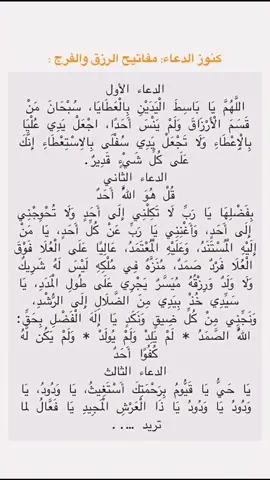 كنوز الدعاء: مفاتيح الرزق والفرج :
الدعاء الأول
اللَّهُمَّ يَا بَاسِطَ الْيَدَيْنِ بِالْعَطَايَا، سُبْحَانَ مَنْ
قَسَمَ الْأَرْزَاقَ وَلَمْ يَنْسَ أَحَدًا، اجْعَلْ يَدِي عُلْيَا
بِالْإِعْطَاءِ وَلَا تَجْعَلْ يَدِي سُفْلَى بِالِاسْتِعْطَاءِ إِنَّكَ
عَلَى كُلِّ شَيْءٍ قَدِيرٌ.
الدعاء الثاني
قُلْ هُوَ اللَّهُ أَحَدٌ
بِفَضْلِهَا يَا رَبِّ لَا تَكِلْنِي إِلَى أَحَدٍ وَلَا تُحْوِجْنِي
إِلَى أَحَدٍ، وَأَغْنِنِي يَا رَبِّ عَنْ كُلِّ أَحَدٍ، يَا مَنْ
إِلَيْهِ الْمُسْتَنَدُ، وَعَلَيْهِ الْمُعْتَمَدُ، عَالِيًا عَلَى الْعُلَا فَوْقَ
الْعُلَا فَرْدٌ صَمَدٌ، مُنَزَّهٌ فِي مُلْكِهِ لَيْسَ لَهُ شَرِيكٌ
وَلَا وَلَدٌ وَرِزْقُهُ مُيَسَّرٌ يَجْرِي عَلَى طُولِ الْمَدَدِ، يَا
سَيِّدِي خُذْ بِيَدِي مِنَ الضَّلَالِ إِلَى الرُّشْدِ،
وَنَجِّنِي مِنْ كُلِّ ضِيقٍ وَنَكَدٍ يَا إِلَهَ الْفَضْلِ بِحَقِّ:
اللَّهُ الصَّمَدُ * لَمْ يَلِدْ وَلَمْ يُولَدْ * وَلَمْ يَكُن لَهُ
كُفُوًا أَحَدٌ
الدعاء الثالث
يَا حَيُّ يَا قَيُّومُ بِرَحْمَتِكَ أَسْتَغِيثُ، يَا وَدُودُ، يَا
وَدُودُ يَا وَدُودُ يَا ذَا الْعَرْشِ الْمَجِيدِ يَا فَعَّالُ لما
تريد ....